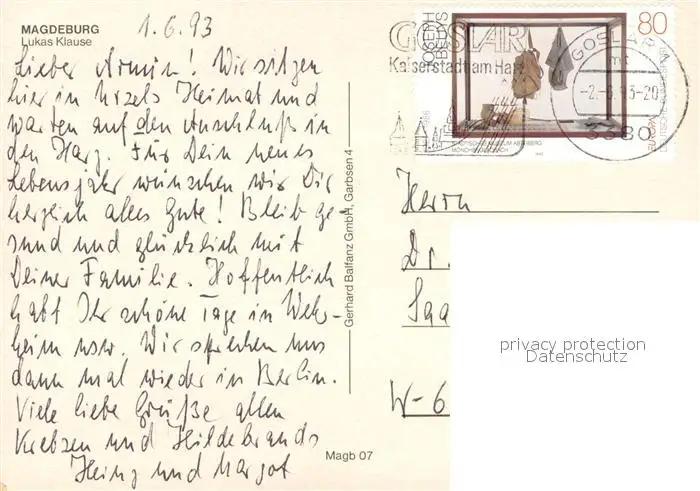 MAGDEBURG
Lukas Klause
1.6.93
Lieber Armin! Wir sitzen
hier in Urzels Heimat und
warten auf den Anschluß in
den Harz. Für Dein neues
Lebensjahr wünschen wir Dir
herzlich alles Gute! Bleib ge-
sund und glücklich mit
Deiner Familie. Hoffentlich
habt Ihr schöne Tage in
heim usw. Wir sprechen uns
dann mal wieder in Berlin.
Viele liebe Grüße allen
Krebsen und Hildebrands
Heinz und Margot
Magb 07
Gerhard Balfanz GmbH, Garbsen 4
GOSLAR
Kaiserstadt am Harz
JOSEPH
BEUYS
80
STÄDTISCHES MUSEUM ABTEIBERG
MÖNCHENGLADBACH
EUROPA
DEUTSCHE BUNDESPOST
GOSLAR
mc
-2.-6.93-20
3380
Herrn
Dr.
Saa
W-6
privacy protection
Datenschutz